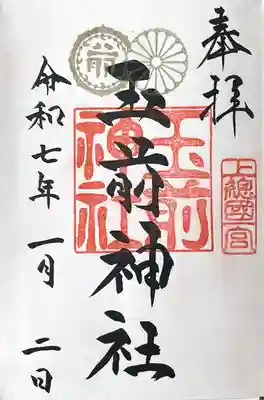 奉拝
上總國一宮
玉前神社
玉前
神社
前
令和七年 一月 二日